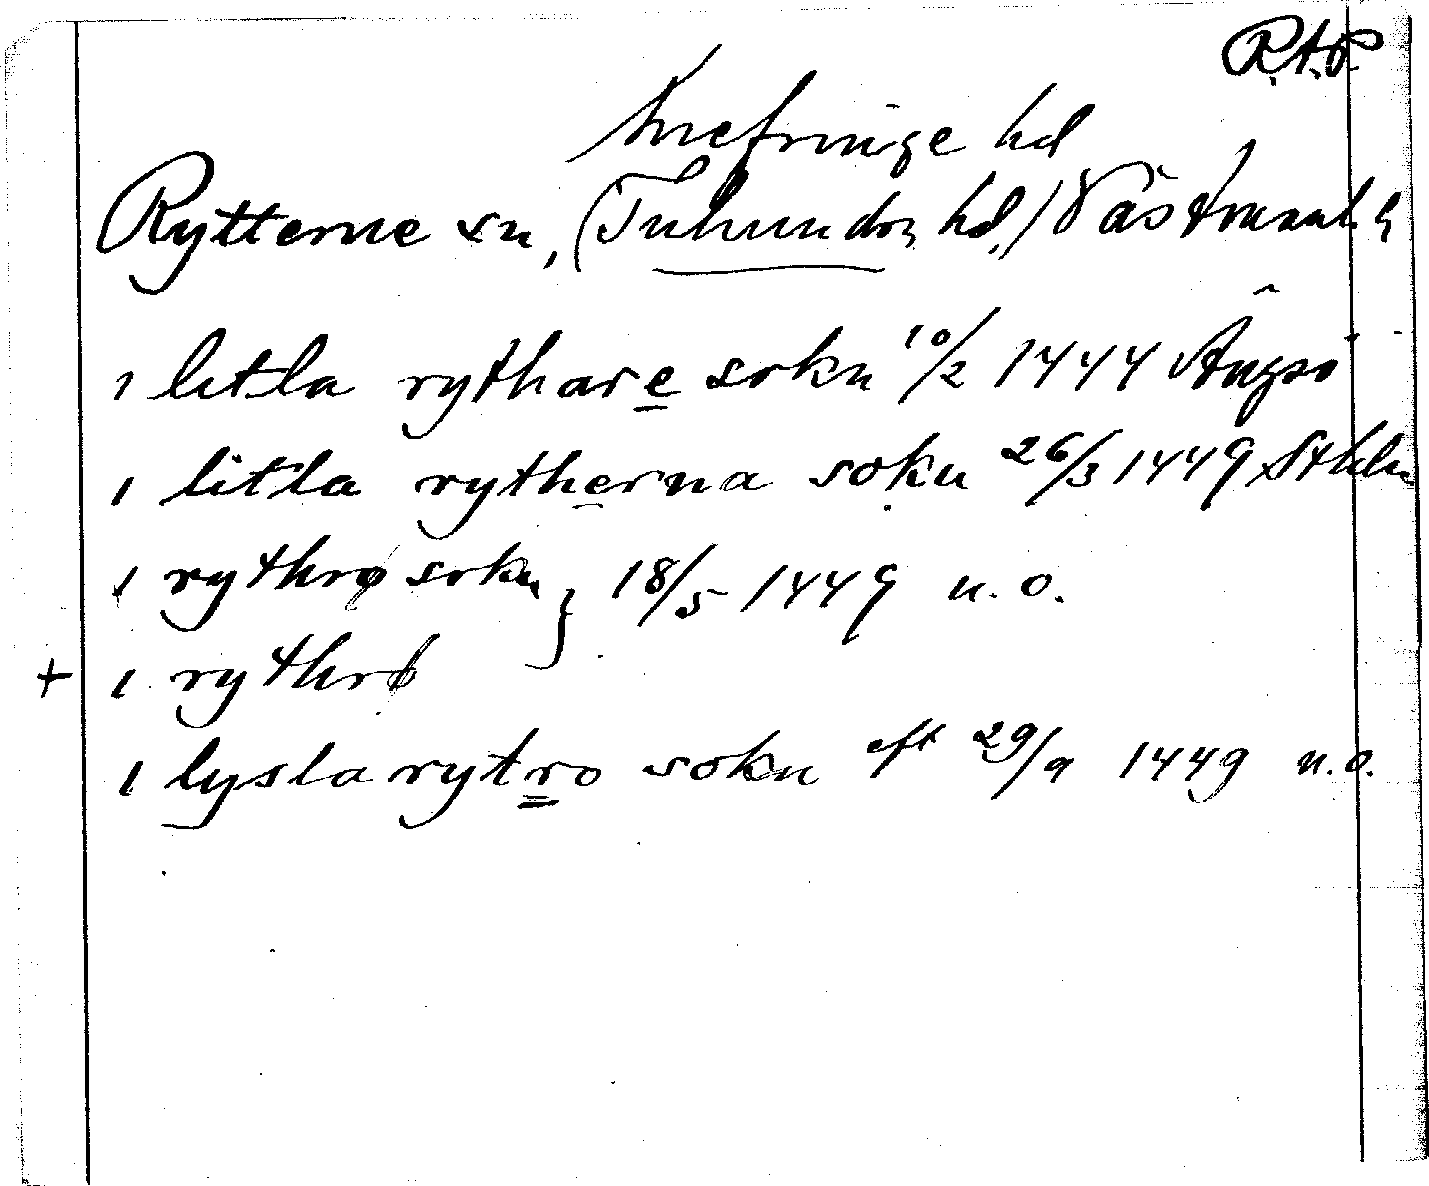 R.A.P.
Snefringe hd
Rytterne sn, (Tuhundra hd,) Västmanl. l
i litla rythare sokn 10/2 1444 Ängsö
i litla rytherna sokn 26/3 1449 Sthlm
i rythrø sokn } 18/5 1449 u. o.
+ i rythrø
i lysla rytro sokn eft 29/9 1449 u. o.